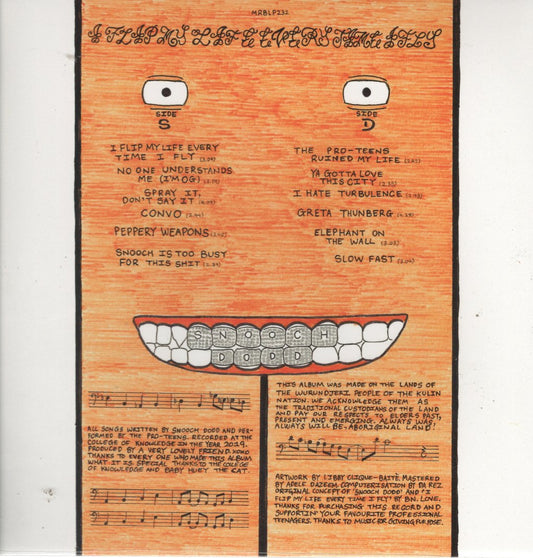 MRBLP232
I FLIP MY LIFE EVERY TIME I FLY
SIDE
S
I FLIP MY LIFE EVERY
TIME I FLY
NO ONE UNDERSTANDS
ME (I'M OG)
SPRAY IT,
DON'T SAY IT
CONVO
PEPPERY WEAPONS
SNOOCH IS TOO BUSY
FOR THIS SHIT
SIDE
D
THE PRO-TEENS
RUINED MY LIFE
YA GOTTA LOVE
THIS CITY
I HATE TURBULENCE
GRETA THUNBERG
ELEPHANT ON
THE WALL
SLOW FAST
SNOOCH
DODD
ALL SONGS WRITTEN BY SNOOCH DODD AND PER-
FORMED BY THE PRO-TEENS. RECORDED AT THE
COLLEGE OF KNOWLEDGE IN THE YEAR 2019.
PRODUCED BY A VERY LOVELY FRIEND. XOXO
THANKS TO EVERY ONE WHO MADE THIS ALBUM
WHAT IT IS. SPECIAL THANKS TO THE COLLEGE
OF KNOWLEDGE AND BABY HUEY THE CAT.
THIS ALBUM WAS MADE ON THE LANDS OF
THE WURUNDJERI PEOPLE OF THE KULIN
NATION. WE ACKNOWLEDGE THEM AS
THE TRADITIONAL CUSTODIANS OF THE LAND
AND PAY OUR RESPECTS TO ELDERS PAST,
PRESENT AND EMERGING. ALWAYS WAS,
ALWAYS WILL BE. ABORIGINAL LAND!
ARTWORK BY LIBBY CLIQUE-BAITÉ. MASTERED
BY ADELE DAZEEM. COMPUTERISATION BY DA REZ
ORIGINAL CONCEPT OF 'SNOOCH DODD' AND 'I
FLIP MY LIFE EVERY TIME I FLY' BY BN. LOVE.
THANKS FOR PURCHASING THIS RECORD AND
SUPPORTIN' YOUR FAVOURITE PROFESSIONAL
TEENAGERS. THANKS TO MUSIC FOR GIVING PURPOSE.